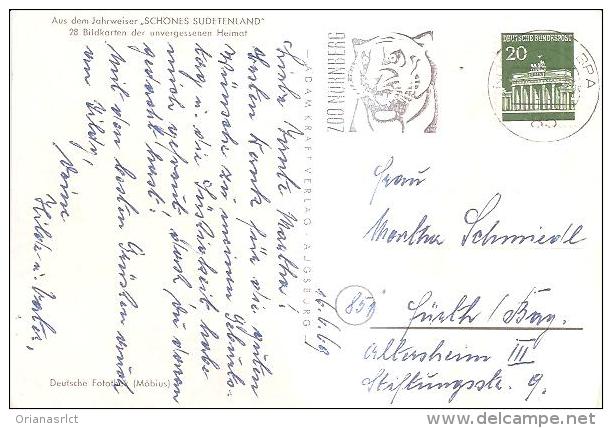 Aus dem Jahrweiser „SCHÖNES SUDETENLAND"
28 Bildkarten der unvergessenen Heimat
16.6.69
Liebe Tante Martha!
Besten Dank für die guten
Wünsche zu meinem Geburts-
tag u. die Süssigkeit habe
mich gefreut dass du daran
gedacht hast!
Mit den besten Grüßen auch
von Vati,
Deine
Hilde u. Vater,
Deutsche Fotothek (Möbius)
ADAM KRAFT VERLAG AUGSBURG
ZOO NÜRNBERG
DEUTSCHE BUNDESPOST
20
85
Frau
Martha Schmiedl
850
Fürth / Bay.
Altersheim III
Stiftungsstr. 9.
Orianasrlct
delcampe.net